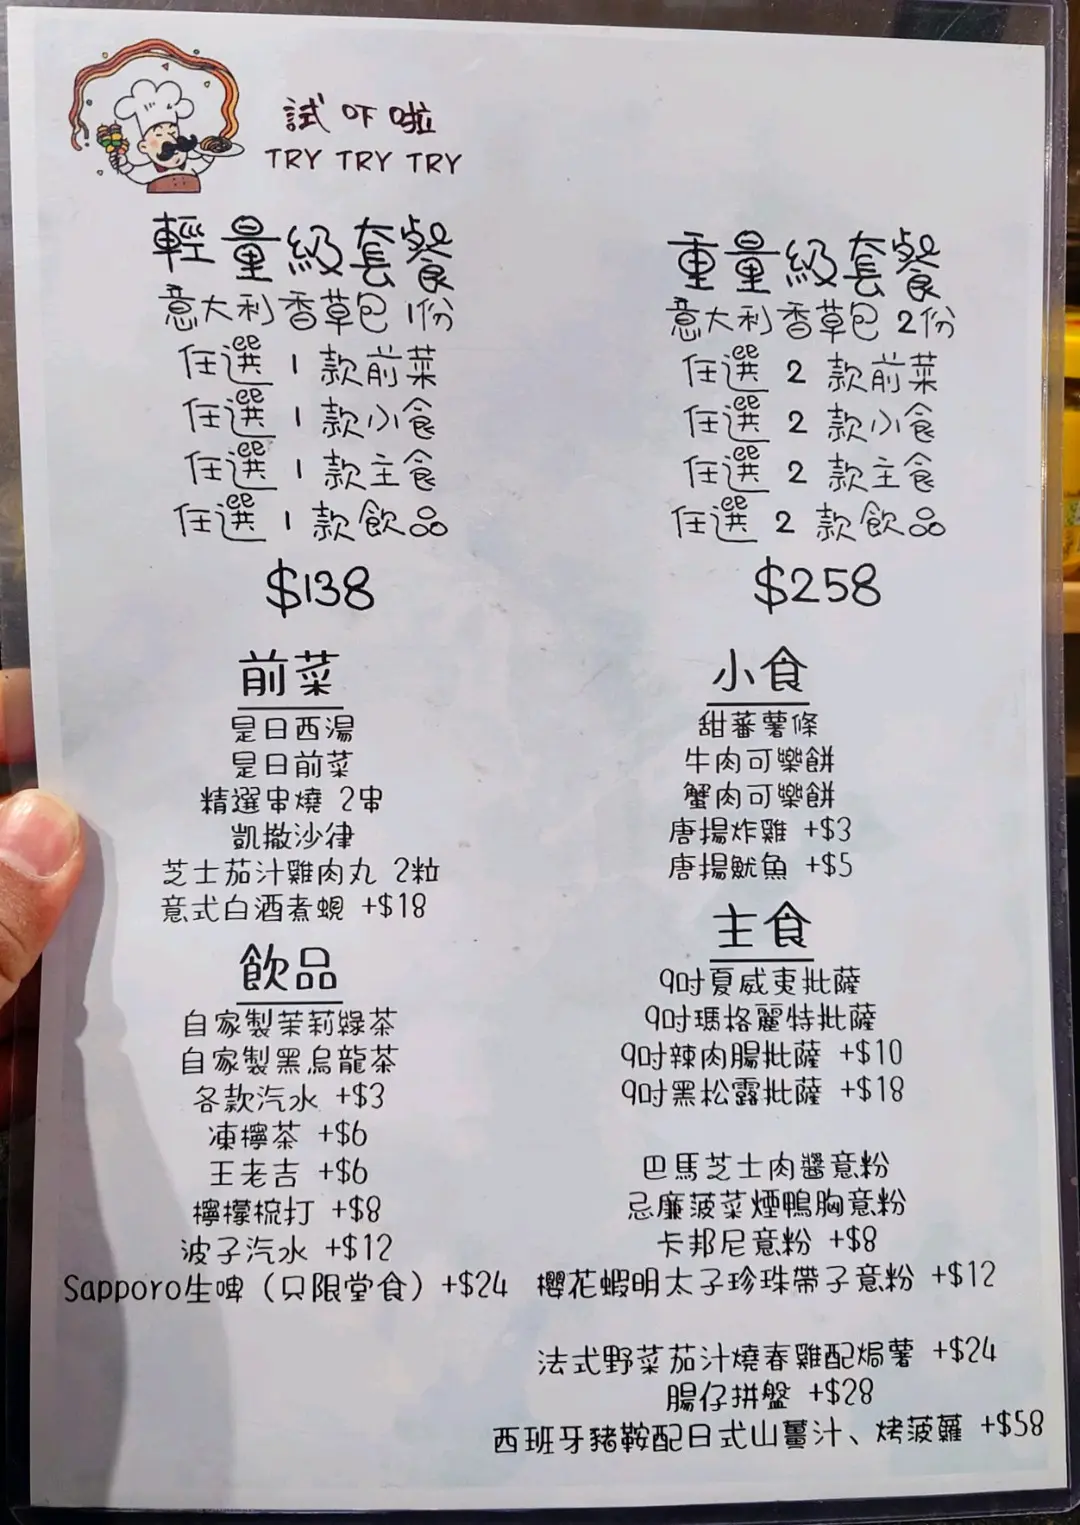 試吓啦
TRY TRY TRY
輕量級套餐
意大利香草包 1份
任選 1 款前菜
任選 1 款小食
任選 1 款主食
任選 1 款飲品
$138
重量級套餐
意大利香草包 2份
任選 2 款前菜
任選 2 款小食
任選 2 款主食
任選 2 款飲品
$258
前菜
是日西湯
是日前菜
精選串燒 2串
凱撒沙律
芝士茄汁雞肉丸 2粒
意式白酒煮蜆 +$18
飲品
自家製茉莉綠茶
自家製黑烏龍茶
各款汽水 +$3
凍檸茶 +$6
王老吉 +$6
檸檬梳打 +$8
波子汽水 +$12
Sapporo生啤（只限堂食）+$24
小食
甜蕃薯條
牛肉可樂餅
蟹肉可樂餅
唐揚炸雞 +$3
唐揚魷魚 +$5
主食
9吋夏威夷批薩
9吋瑪格麗特批薩
9吋辣肉腸批薩 +$10
9吋黑松露批薩 +$18
巴馬芝士肉醬意粉
忌廉菠菜煙鴨胸意粉
卡邦尼意粉 +$8
櫻花蝦明太子珍珠帶子意粉 +$12
法式野菜茄汁燒春雞配焗薯 +$24
腸仔拼盤 +$28
西班牙豬鞍配日式山薑汁、烤菠蘿 +$58